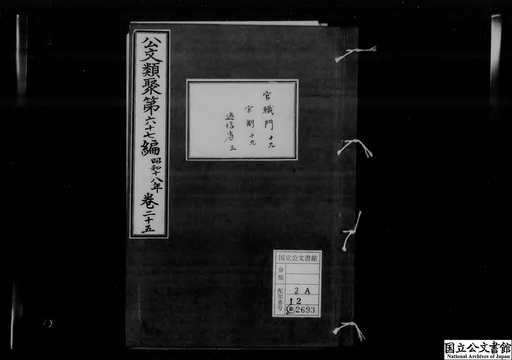 公文類聚第六十七編 昭和十八年 巻二十五
官職門 十九
官制 十九
逓信省 五
国立公文書館
分類
配架番号
2 A
12
2693
国立公文書館
National Archives of Japan